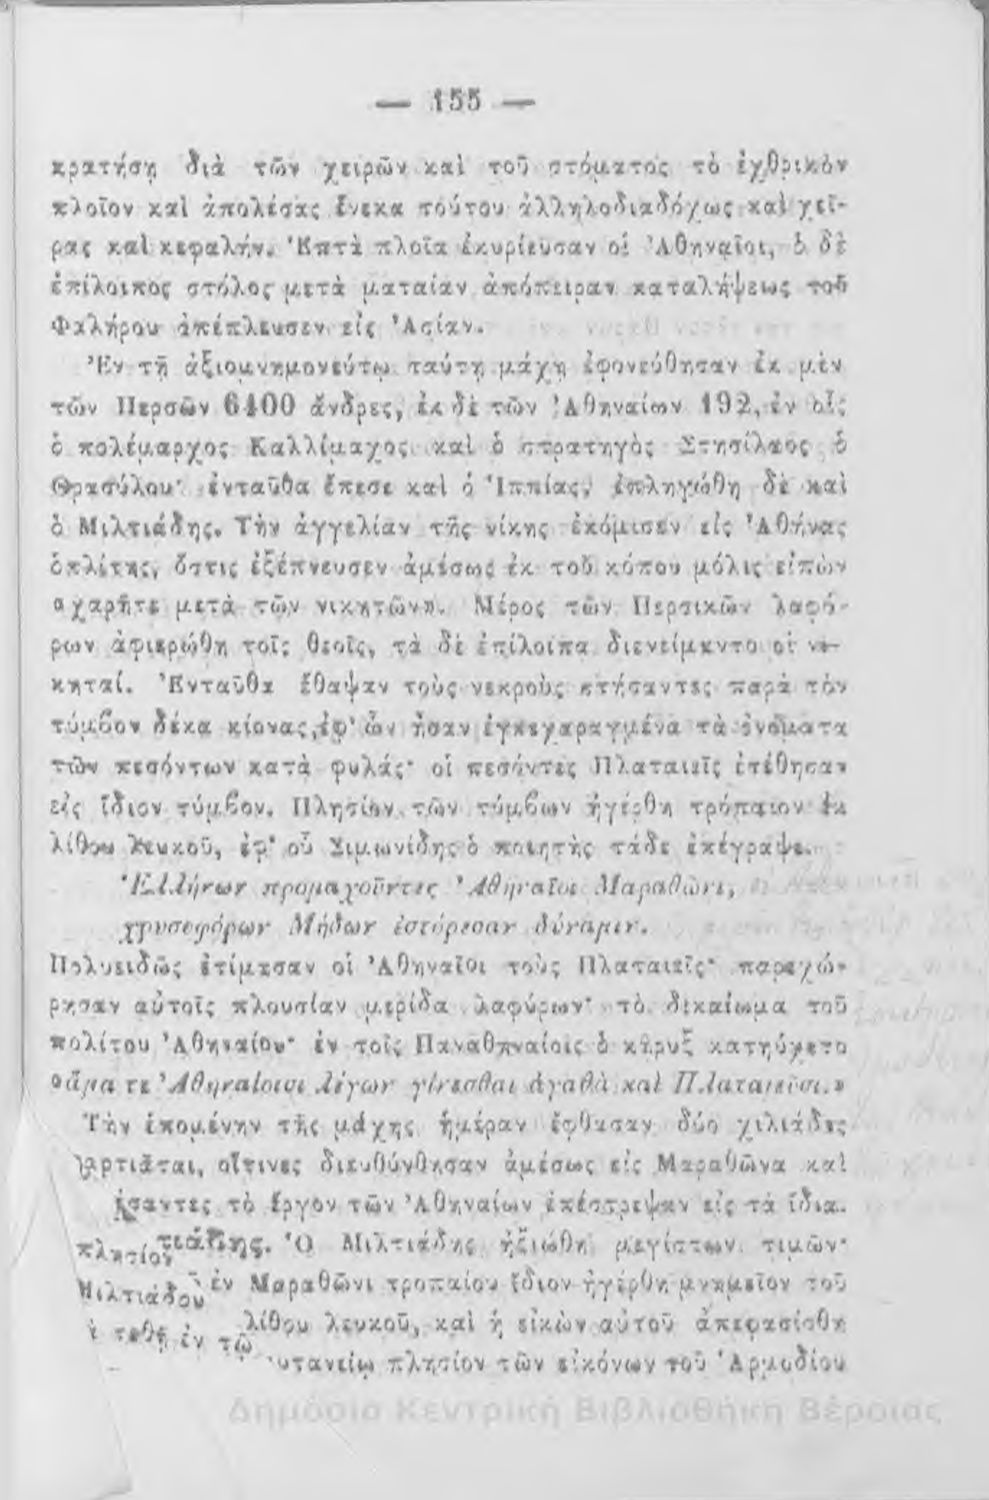 — 155 —
κρατήσῃ διὰ τῶν χειρῶν καὶ τοῦ στόματος τὸ ἐχθρικὸν
πλοῖον καὶ ἀπολέσας ἕνεκα τούτου ἀλληλοδιαδόχως καὶ χεῖ-
ρας καὶ κεφαλήν. Ἑπτὰ πλοῖα ἐκυρίευσαν οἱ Ἀθηναῖοι, ὁ δὲ
ἐπίλοιπος στόλος μετὰ ματαίαν ἀπόπειραν καταλήψεως τοῦ
Φαλήρου ἀπέπλευσεν εἰς Ἀσίαν.
Ἐν τῇ ἀξιομνημονεύτῳ ταύτῃ μάχῃ ἐφονεύθησαν ἐκ μὲν
τῶν Περσῶν 6400 ἄνδρες, ἐκ δὲ τῶν Ἀθηναίων 192, ἐν οἷς
ὁ πολέμαρχος Καλλίμαχος καὶ ὁ στρατηγὸς Στησίλαος ὁ
Θρασύλου· ἐνταῦθα ἔπεσε καὶ ὁ Ἱππίας, ἐπληγώθη δὲ καὶ
ὁ Μιλτιάδης. Τὴν ἀγγελίαν τῆς νίκης ἐκόμισεν εἰς Ἀθήνας
ὁπλίτης, ὅστις ἐξέπνευσεν ἀμέσως ἐκ τοῦ κόπου μόλις εἰπὼν
«χαρῆτε μετὰ τῶν νικητῶν». Μέρος τῶν Περσικῶν λαφύ-
ρων ἀφιερώθη τοῖς θεοῖς, τὰ δὲ ἐπίλοιπα διενείμαντο οἱ νι-
κηταί. Ἐνταῦθα ἔθαψαν τοὺς νεκροὺς στήσαντες παρὰ τὸν
τύμβον δέκα κίονας, ἐφ' ὧν ἦσαν ἐγκεχαραγμένα τὰ ὀνόματα
τῶν πεσόντων κατὰ φυλάς· οἱ πεσόντες Πλαταιεῖς ἐτέθησαν
εἰς ἴδιον τύμβον. Πλησίον τῶν τύμβων ἠγέρθη τρόπαιον ἐκ
λίθου λευκοῦ, ἐφ' οὗ Σιμωνίδης ὁ ποιητὴς τάδε ἐπέγραψε.
Ἑλλήνων προμαχοῦντες Ἀθηναῖοι Μαραθῶνι,
χρυσοφόρων Μήδων ἐστόρεσαν δύναμιν.
Πολυειδῶς ἐτίμησαν οἱ Ἀθηναῖοι τοὺς Πλαταιεῖς· παρεχώ-
ρησαν αὐτοῖς πλουσίαν μερίδα λαφύρων· τὸ δικαίωμα τοῦ
πολίτου Ἀθηναίου· ἐν τοῖς Παναθηναίοις ὁ κῆρυξ κατηύχετο
«ἅμα τε Ἀθηναίοισι λέγων γίνεσθαι ἀγαθὰ καὶ Πλαταιεῦσι.»
Τὴν ἑπομένην τῆς μάχης ἡμέραν ἔφθασαν δύο χιλιάδες
αρτιᾶται, οἵτινες διευθύνθησαν ἀμέσως εἰς Μαραθῶνα καὶ
ήσαντες τὸ ἔργον τῶν Ἀθηναίων ἐπέστρεψαν εἰς τὰ ἴδια.
τιάδης. Ὁ Μιλτιάδης ἠξιώθη μεγίστων τιμῶν·
πλησίον ἐν Μαραθῶνι τροπαίου ἴδιον ἠγέρθη μνημεῖον τοῦ
Μιλτιάδου λίθου λευκοῦ, καὶ ἡ εἰκὼν αὐτοῦ ἀπεφασίσθη
τεθῇ ἐν τῷ υτανείῳ πλησίον τῶν εἰκόνων τοῦ Ἁρμοδίου
Δημόσια Κεντρική Βιβλιοθήκη Βέροιας